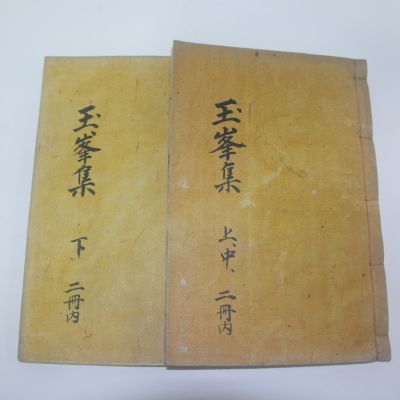 玉峯集
上、中、
二冊内
玉峯集
下、
二冊内